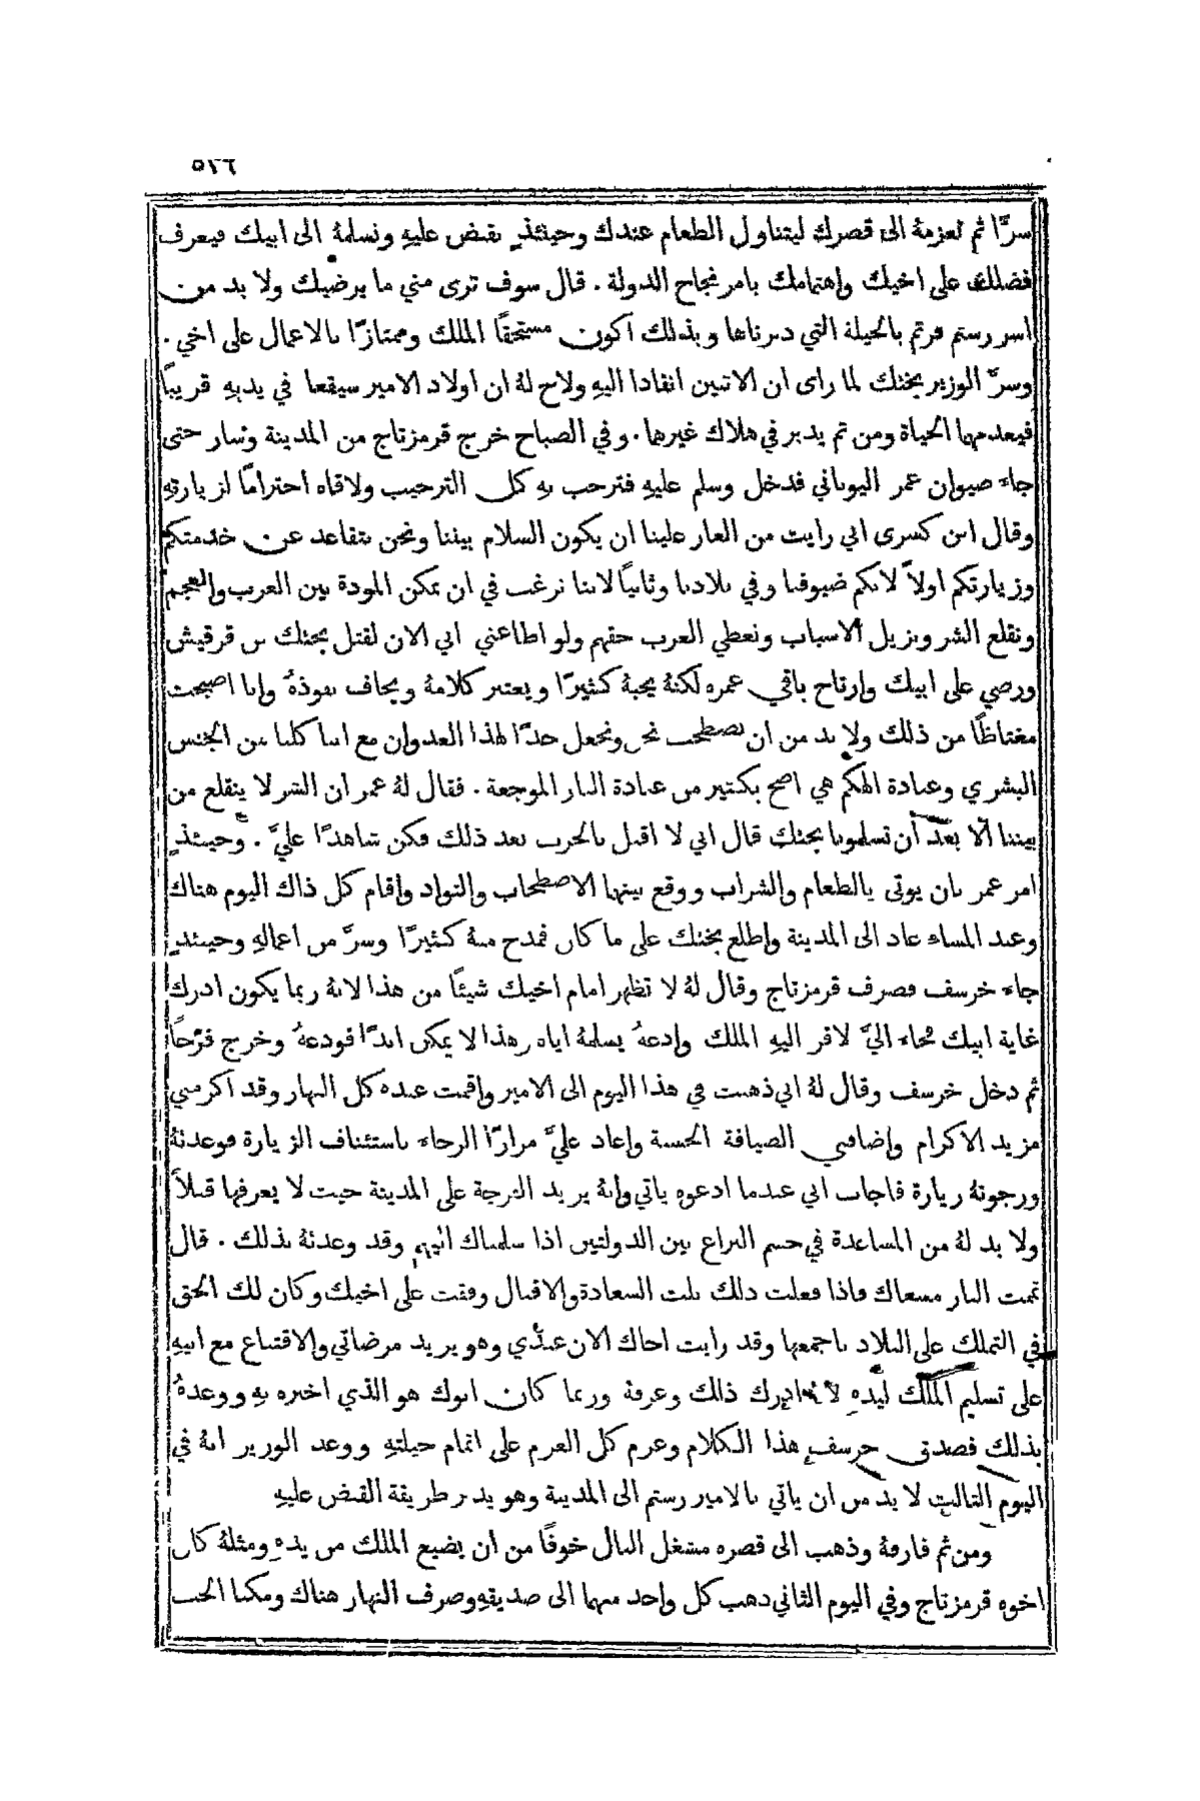 ٥٢٦
سرًّا ثم تعزمهُ الى قصرك ليتناول الطعام عندك وحينئذٍ نقبض عليهِ ونسلمهُ الى ابيك فيعرف
فضلك على اخيك واهتمامك بامر نجاح الدولة . قال سوف ترى مني ما يرضيك ولا بد من
اسر رستم فرتم بالحيلة التي دبرناها وبذلك اكون مستحقًا الملك وممتازًا بالاعمال على اخي .
وسرَّ الوزير بختك لما راى ان الاثنين انقادا اليهِ ولاح لهُ ان اولاد الامير سيقعا في يديهِ قريبًا
فيعدمهما الحياة ومن ثم يدبر في هلاك غيرها . وفي الصباح خرج قرمزتاج من المدينة وسار حتى
جاء صيوان عمر اليوناني فدخل وسلم عليهِ فترحب بهِ كل الترحيب ولاقاه احترامًا لزيارتهِ
وقال ابن كسرى اني رايت من العار علينا ان يكون السلام بيننا ونحن نتقاعد عن خدمتكم
وزيارتكم اولاً لانكم ضيوفنا وفي بلادنا وثانيًا لاننا نرغب في ان تمكن المودة بين العرب والعجم
ونقلع الشر ونزيل الاسباب ونعطي العرب حقهم ولو اطاعني ابي الان لقتل بختك بن قرقيش
ورضي على ابيك وارتاح باقي عمره لكنهُ يحبهُ كثيرًا ويعتبر كلامهُ ويخاف نفوذهُ وانا اصبحت
مغتاظًا من ذلك ولا بد من ان نصطحب نحن ونجعل حدًّا لهذا العدوان مع اننا كلنا من الجنس
البشري وعبادة الهكم هي اصح بكثير من عبادة النار الموجعة . فقال لهُ عمر ان الشر لا ينقلع من
بيننا الا بعد أن تسلمونا بختك قال اني لا اقبل بالحرب بعد ذلك فكن شاهدًا عليَّ . وحينئذٍ
امر عمر بان يوتى بالطعام والشراب ووقع بينهما الاصطحاب والتواد واقام كل ذاك اليوم هناك
وعند المساء عاد الى المدينة واطلع بختك على ما كان فمدح منهُ كثيرًا وسرَّ من اعمالهِ وحينئذٍ
جاء خرسف فصرف قرمزتاج وقال لهُ لا تظهر امام اخيك شيئًا من هذا لانهُ ربما يكون ادرك
غاية ابيك فجاء اليَّ لاقر اليهِ الملك وادعهُ يسلمهُ اياه وهذا لا يمكن ابدًا فودعهُ وخرج فرحًا
ثم دخل خرسف وقال لهُ اني ذهبت في هذا اليوم الى الامير واقمت عنده كل النهار وقد اكرمني
مزيد الاكرام واضافني الضيافة الحسنة واعاد عليَّ مرارًا الرجاء باستئناف الزيارة فوعدتهُ
ورجوتهُ زيارة فاجاب اني عندما ادعوه ياتي وانهُ يريد الفرجة على المدينة حيث لا يعرفها قبلاً
ولا بد لهُ من المساعدة في حسم النزاع بين الدولتين اذا سلمناك اليهم وقد وعدتهُ بذلك . قال
تممت النار مسعاك فاذا فعلت ذلك نلت السعادة والاقبال وفقت على اخيك وكان لك الحق
في التملك على البلاد باجمعها وقد رايت اخاك الان عندي وهو يريد مرضاتي والاقتناع مع ابيهِ
على تسليم الملك ليدهِ لانه ادرك ذلك وعرفهُ وربما كان ابوك هو الذي اخبره بهِ ووعدهُ
بذلك فصدق خرسف هذا الكلام وعزم كل العزم على اتمام حيلتهِ ووعد الوزير انهُ في
اليوم الثالث لا بد من ان ياتي بالامير رستم الى المدينة وهو يدبر طريقة القبض عليهِ
ومن ثم فارقهُ وذهب الى قصره مشغل البال خوفًا من ان يضيع الملك من يدهِ ومثلهُ كان
اخوه قرمزتاج وفي اليوم الثاني ذهب كل واحد منهما الى صديقهِ وصرف النهار هناك ومكنا الحب